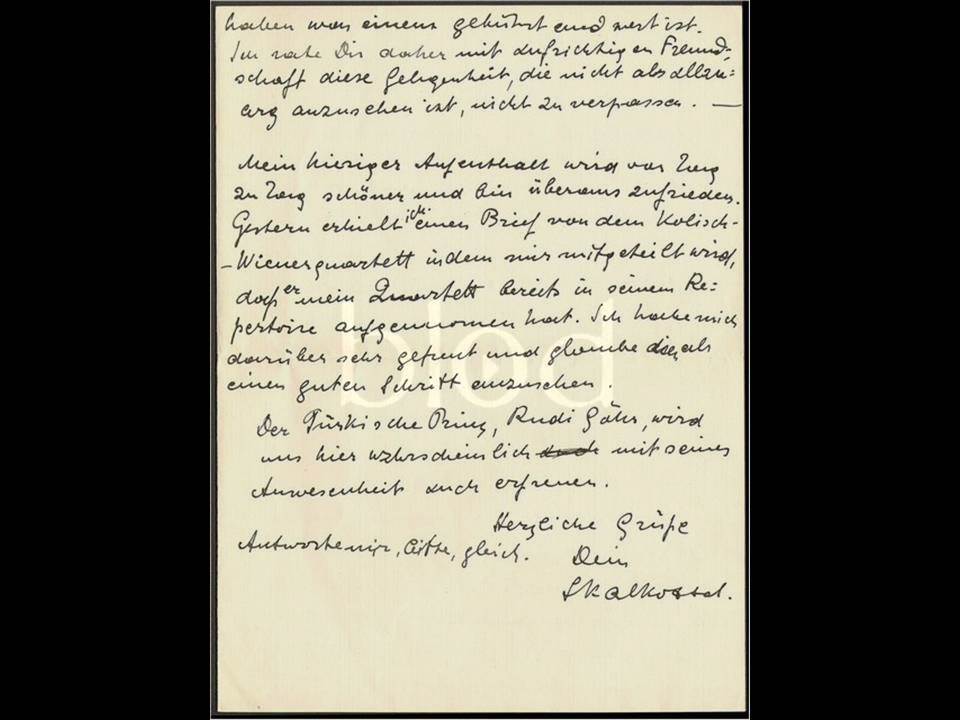 haben was einem gebührt und wert ist.
Ich rate Dir daher mit aufrichtigen Freund-
schaft diese Gelegenheit, die nicht als allzu=
arg anzusehen ist, nicht zu verpassen. —
Mein hiesiger Aufenthalt wird von Tag
zu Tag schöner und bin überaus zufrieden.
Gestern erhielt ich einen Brief von dem Kolisch-
-Wienerquartett indem mir mitgeteilt wird,
dass er mein Quartett bereits in seinem Re=
pertoire aufgenommen hat. Ich habe mich
darüber sehr gefreut und glaube als
einen guten Schritt anzusehen.
Der Türkische Prinz, Rudi Göhr, wird
uns hier wahrscheinlich mit seiner
Anwesenheit auch erfreuen.
Herzliche Grüße
Antworte mir, bitte, gleich.
Dein
Skalkottas.
blod